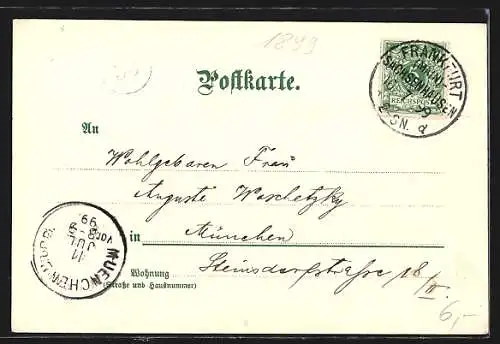 1899
Postkarte.
FRANKFURT
(MAIN)
SACHSENHAUSEN
99
2-3N.
REICHSPOST
An
Wohlgeboren Frau
Auguste Waschetzky
in München
Steinsdorfstraße 18/II.
Wohnung
(Straße und Hausnummer)
MUENCHEN
11
JUL
VORM 8-9
99.
6,-